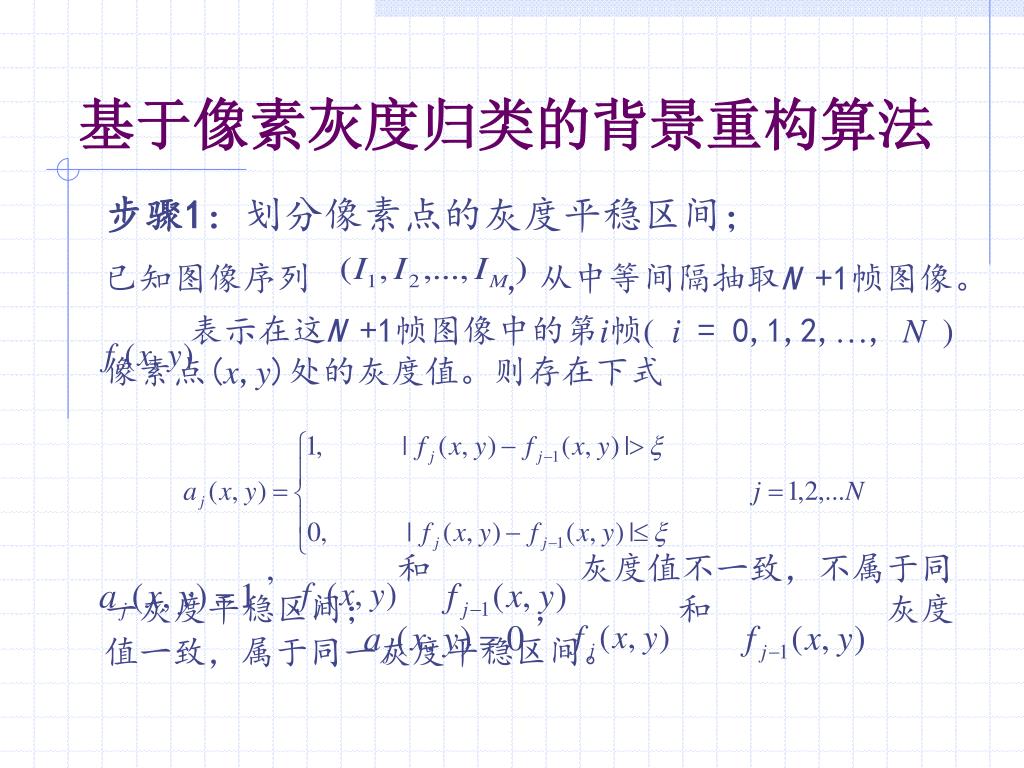 基于像素灰度归类的背景重构算法
步骤1：划分像素点的灰度平稳区间；
已知图像序列 (I₁, I₂,..., I_M), 从中等间隔抽取N +1帧图像。
表示在这N +1帧图像中的第i帧( i = 0,1,2,…, N )
f_i(x, y)
像素点(x,y)处的灰度值。则存在下式
1, | f_j(x, y) − f_{j−1}(x, y) |> ξ
a_j(x, y) = { j = 1,2,...N
0, | f_j(x, y) − f_{j−1}(x, y) |≤ ξ
, 和 灰度值不一致，不属于同
a_j(x, y) = 1 f_j(x, y) f_{j−1}(x, y)
一灰度平稳区间； ; 和 灰度
a_j(x, y) = 0 f_j(x, y) f_{j−1}(x, y)
值一致，属于同一灰度平稳区间。